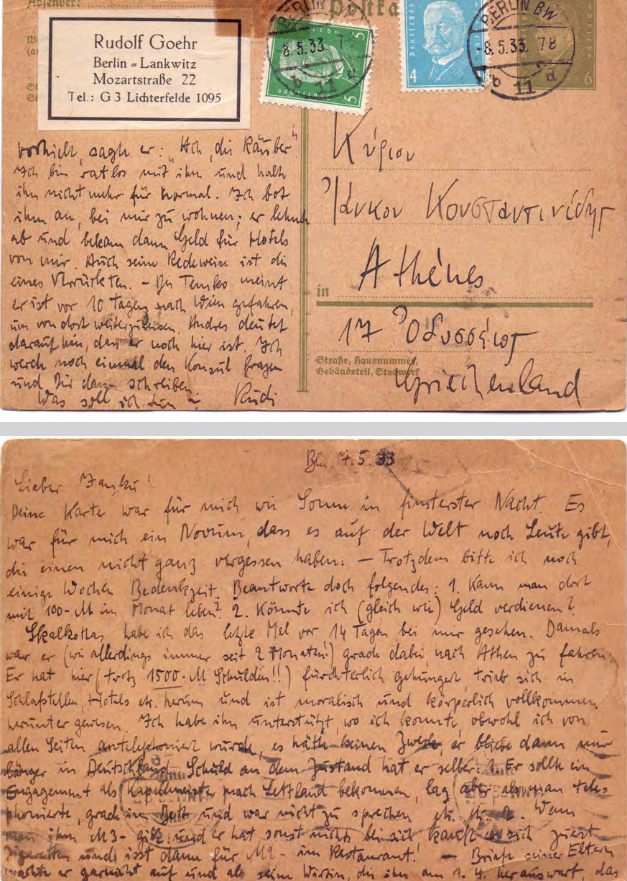 Absender:
Postkarte
Rudolf Goehr
Berlin-Lankwitz
Mozartstraße 22
Tel.: G 3 Lichterfelde 1095
BERLIN SW
8.5.33
b 11 d
5
4
BERLIN SW
8.5.33. 78
b 11 d
6
vorhielt, sagte er: „Ach, die Räuber"
Ich bin ratlos mit ihm und halte
ihn nicht mehr für normal. Ich bot
ihm an, bei mir zu wohnen; er lehnte
ab und bekam dann Geld für Hotels
von mir. Auch seine Redeweise ist die
eines Verrückten. –
er ist vor 10 Tagen nach Wien gefahren,
um von dort weiterzureisen. Andres deutet
darauf hin, dass er noch hier ist. Ich
werde noch einmal den Konsul fragen
und Dir dann schreiben
Was soll ich tun? Rudi
Κύριον
Ἰάνκον Κονσταντινίδης
Athènes
in
17
Straße, Hausnummer,
Gebäudeteil, Stockwerk
Griechenland
Bln. 7.5.33
Lieber Janku!
Deine Karte war für mich wie Sonne in finsterster Nacht. Es
war für mich ein Novum, dass es auf der Welt noch Leute gibt,
die einen nicht ganz vergessen haben. – Trotzdem bitte ich noch
einige Wochen Bedenkzeit. Beantworte doch folgendes: 1. Kann man dort
mit 100.-M im Monat leben? 2. Könnte ich (gleich wie) Geld verdienen?
Skalkottas habe ich das letzte Mal vor 14 Tagen bei mir gesehen. Damals
war er (wie allerdings immer seit 2 Monaten!) grade dabei nach Athen zu fahren.
Er hat hier (trotz 1500.-M Schulden!!) fürchterlich gehungert trieb sich in
Schlafstellen, Hotels etc. herum und ist moralisch und körperlich vollkommen
herunter gewesen. Ich habe ihn unterstützt wo ich konnte obwohl ich von
allen Seiten antelephoniert wurde, es hätte keinen Zweck, er bliebe dann nur
länger in Deutschland. Schuld an dem Zustand hat er selber: Er sollte ein
Engagement als Kapellmeister nach Lettland bekommen, lag aber als man tele-
phonierte, grade im Bett und war nicht zu sprechen etc. etc. Wenn
man ihm M3.- gibt und er hat sonst nichts bei sich kauft er sich zuerst
Zigaretten und isst dann für M2.- im Restaurant! – Briefe seiner Eltern
machte er garnicht auf und als seine Wirtin, die ihn am 1.4. herauswarf, das